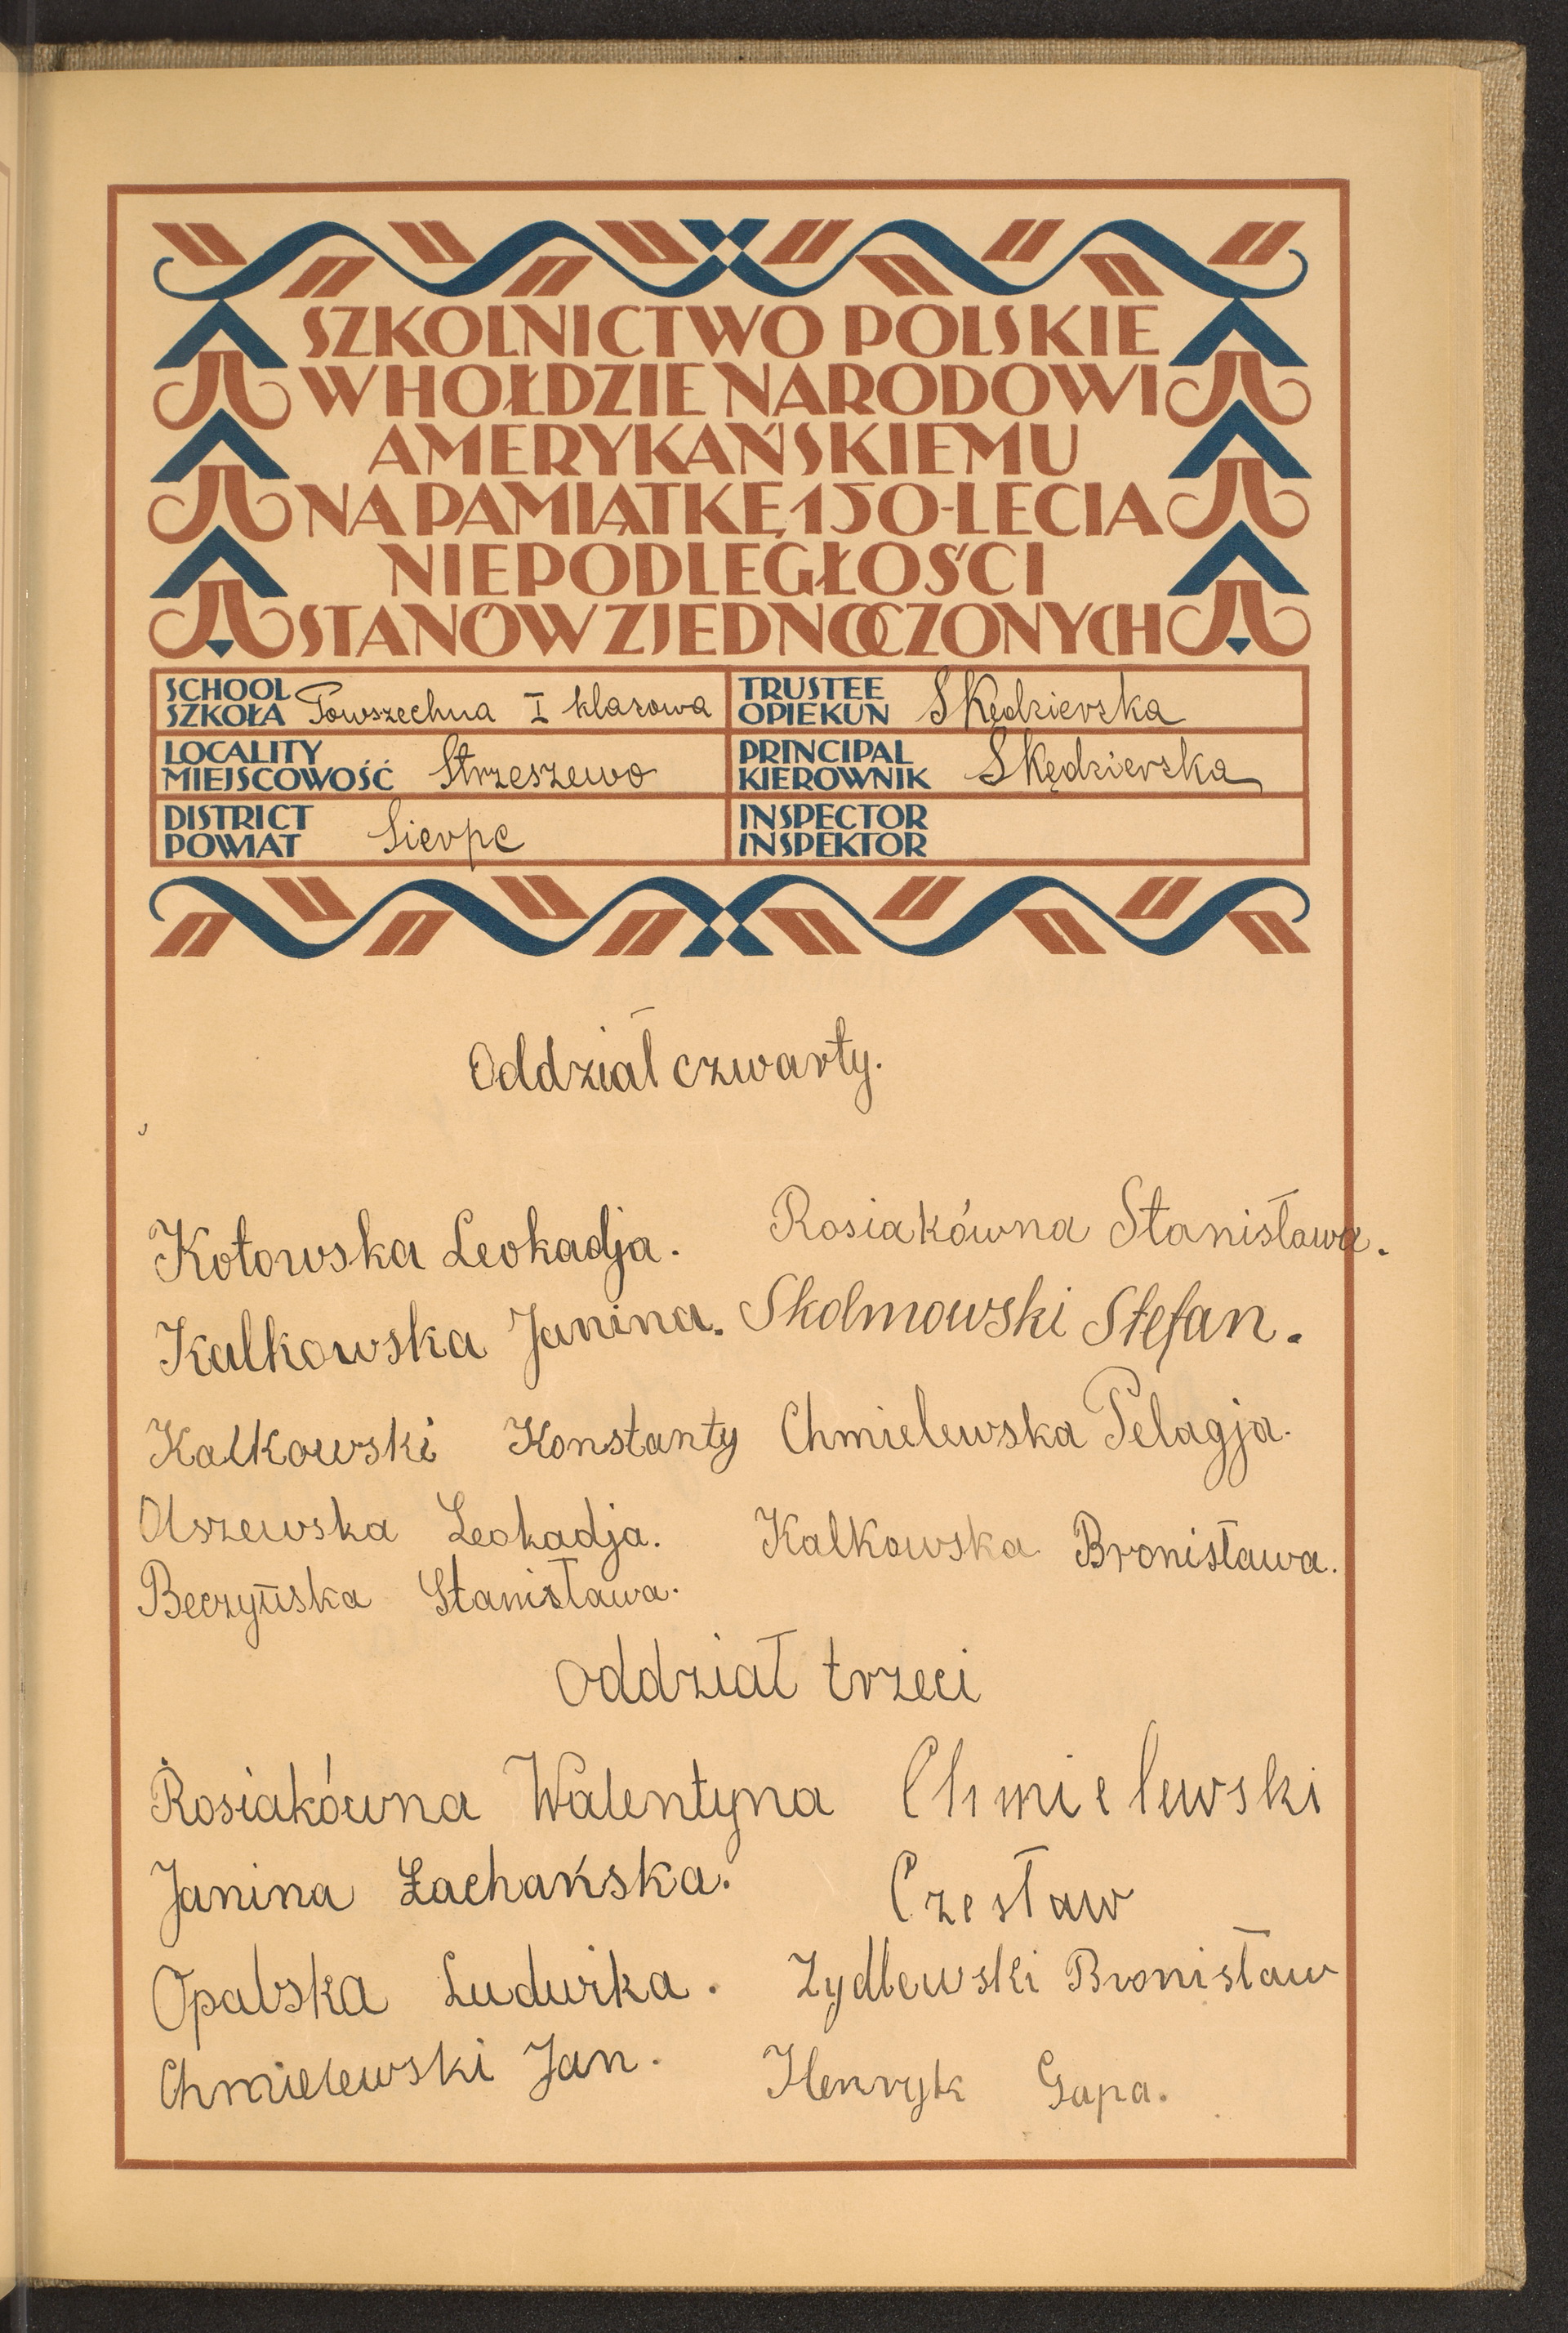 SZKOLNICTWO POLSKIE
W HOŁDZIE NARODOWI
AMERYKAŃSKIEMU
NA PAMIĄTKĘ 150-LECIA
NIEPODLEGŁOŚCI
STANÓW ZJEDNOCZONYCH
SCHOOL
SZKOŁA Powszechna I klasowa
TRUSTEE
OPIEKUN S Kędzierska
LOCALITY
MIEJSCOWOŚĆ Strzeszewo
PRINCIPAL
KIEROWNIK S Kędzierska
DISTRICT
POWIAT Sierpc
INSPECTOR
INSPEKTOR
Oddział czwarty.
Kotowska Leokadja.
Kalkowska Janina.
Kalkowski Konstanty
Olszewska Leokadja.
Beczyńska Stanisława.
Rosiakówna Stanisława.
Skolmowski Stefan.
Chmielewska Pelagja.
Kalkowska Bronisława.
Oddział trzeci
Rosiakówna Walentyna
Janina Łachańska.
Opalska Ludwika.
Chmielewski Jan.
Chmielewski
Czesław
Zydlewski Bronisław
Henryk Gapa.